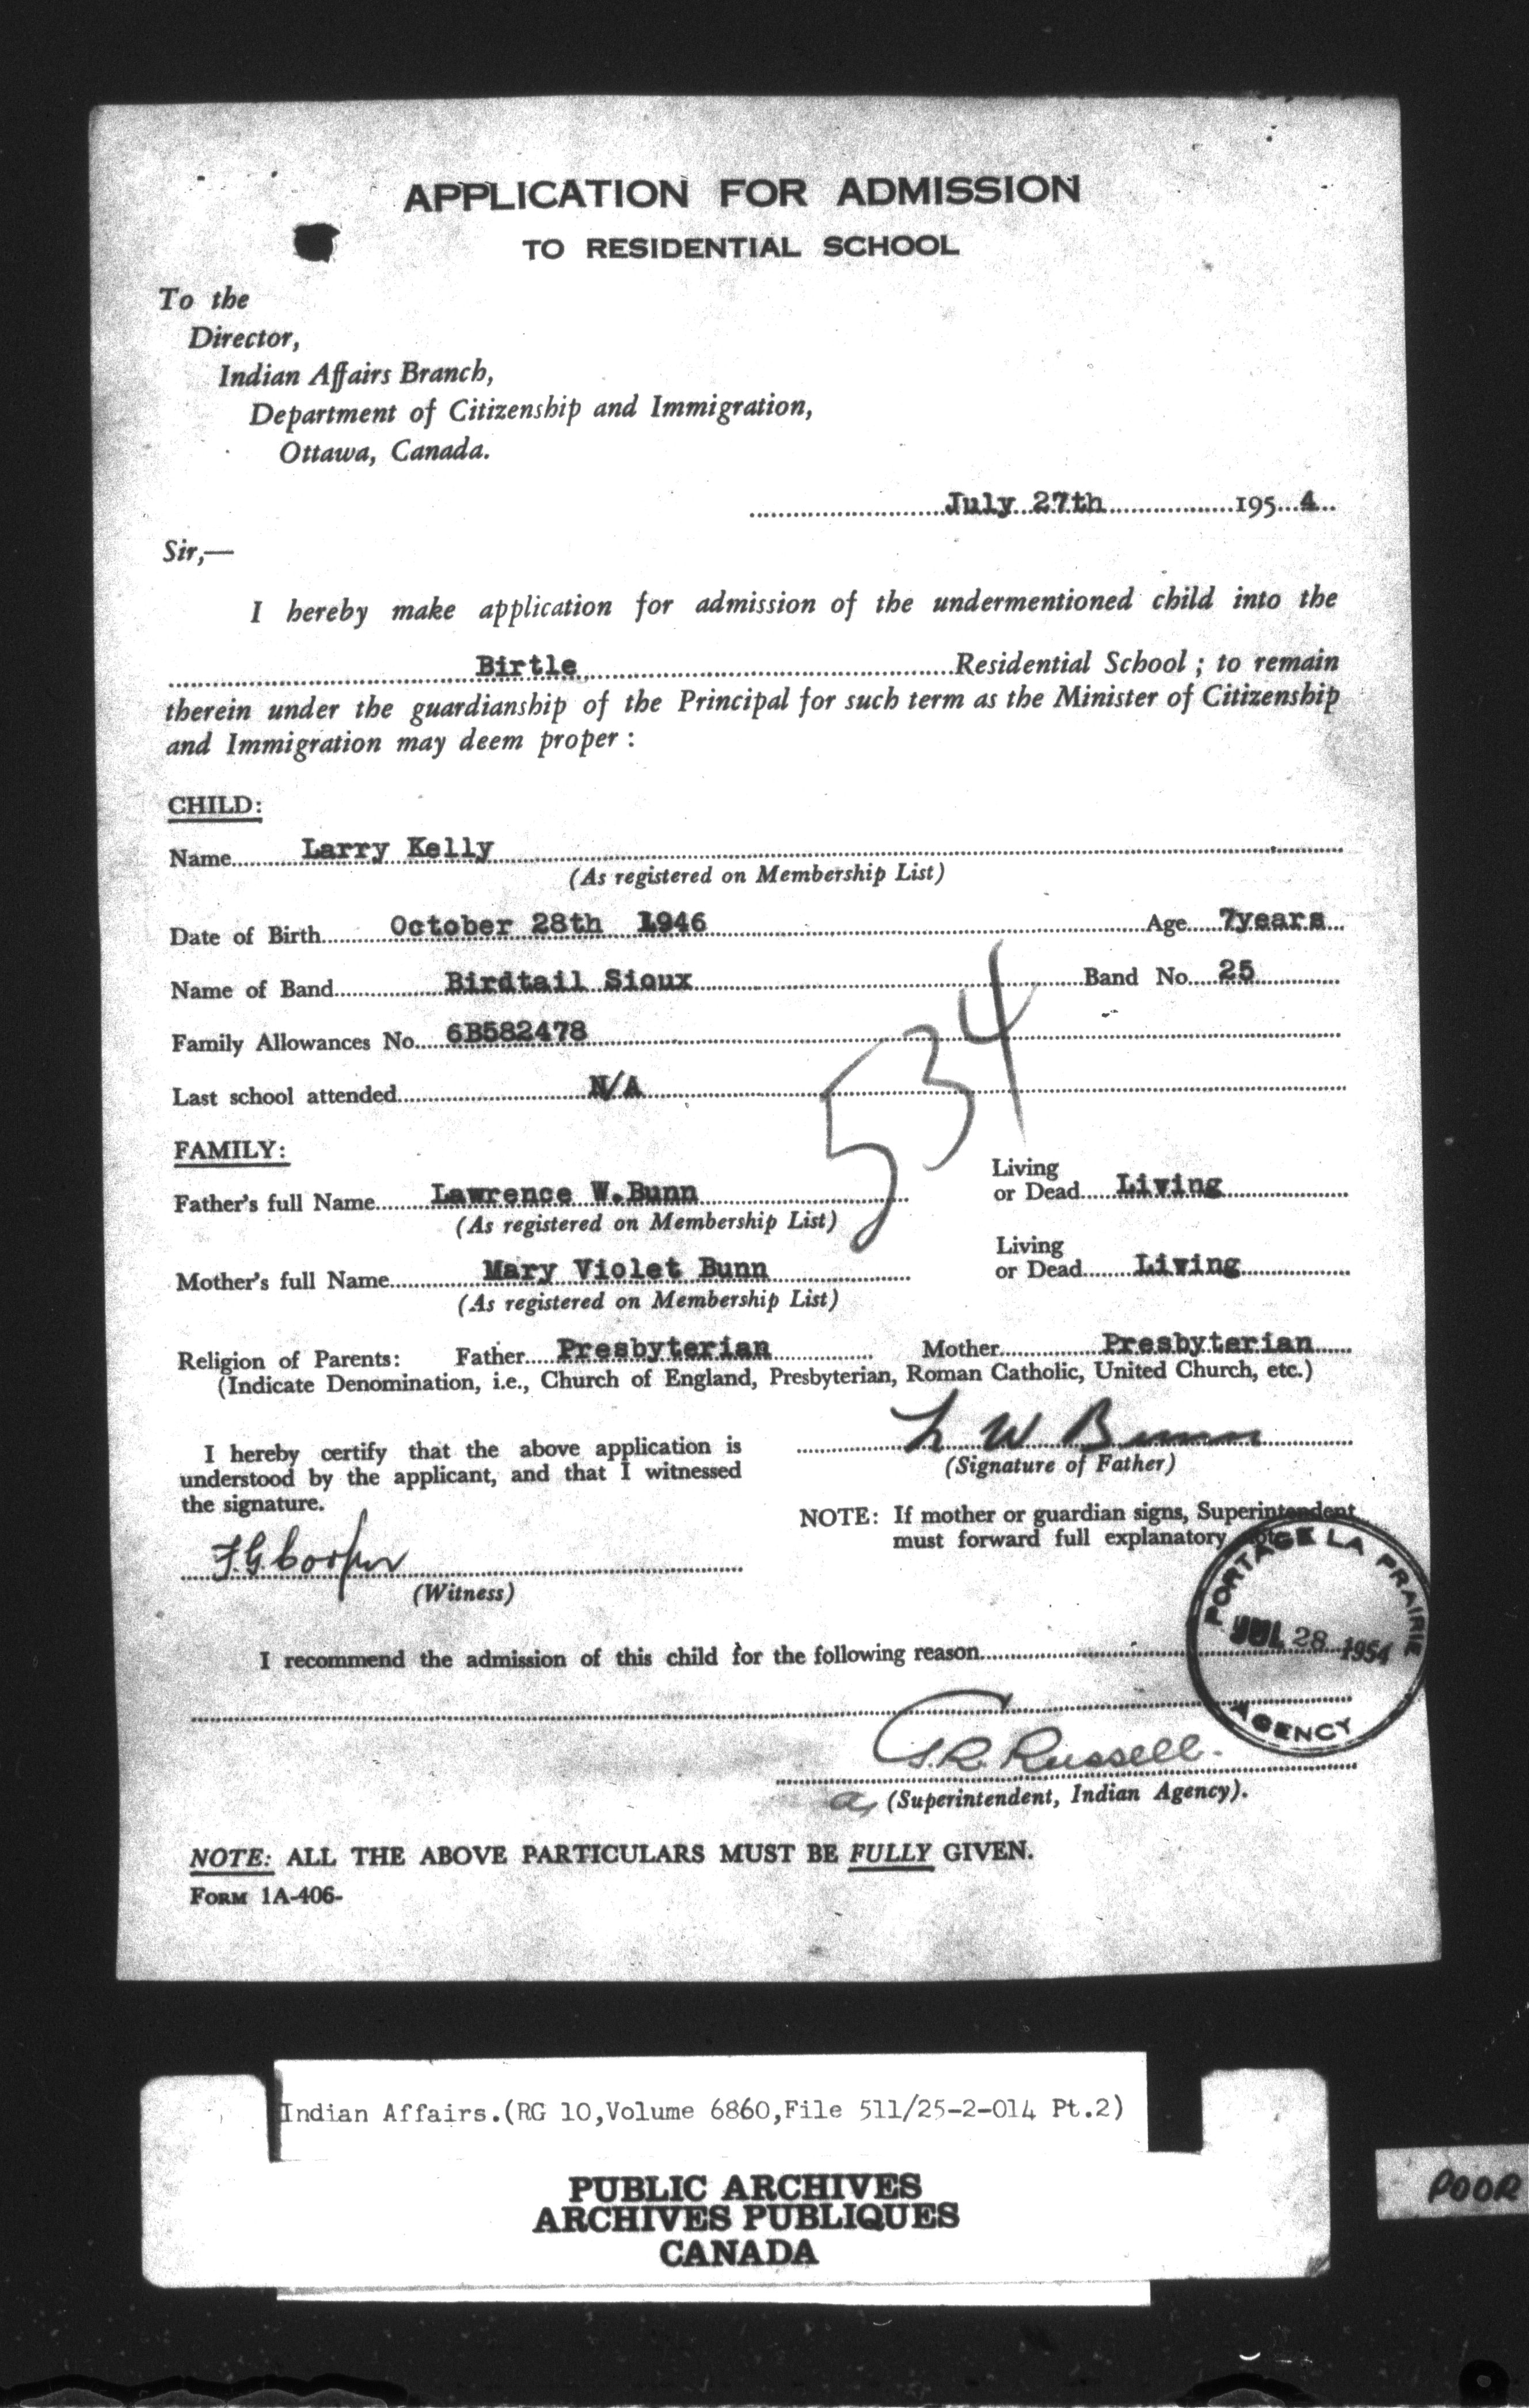 APPLICATION FOR ADMISSION
TO RESIDENTIAL SCHOOL
To the
Director,
Indian Affairs Branch,
Department of Citizenship and Immigration,
Ottawa, Canada.
July 27th 195 4
Sir,—
I hereby make application for admission of the undermentioned child into the
Birtle Residential School ; to remain
therein under the guardianship of the Principal for such term as the Minister of Citizenship
and Immigration may deem proper :
CHILD:
Name Larry Kelly
(As registered on Membership List)
Date of Birth October 28th 1946 Age 7years
Name of Band Birdtail Sioux Band No. 25
Family Allowances No. 6B582478
Last school attended N/A
534
FAMILY:
Father's full Name Lawrence W.Bunn Living or Dead Living
(As registered on Membership List)
Mother's full Name Mary Violet Bunn Living or Dead Living
(As registered on Membership List)
Religion of Parents: Father Presbyterian Mother Presbyterian
(Indicate Denomination, i.e., Church of England, Presbyterian, Roman Catholic, United Church, etc.)
L W Bunn
(Signature of Father)
I hereby certify that the above application is
understood by the applicant, and that I witnessed
the signature.
NOTE: If mother or guardian signs, Superintendent
must forward full explanatory
F.G. Cooper
(Witness)
PORTAGE LA PRAIRIE
JUL 28 1954
AGENCY
I recommend the admission of this child for the following reason
S.R. Russell.
a, (Superintendent, Indian Agency).
NOTE: ALL THE ABOVE PARTICULARS MUST BE FULLY GIVEN.
FORM 1A-406-
Indian Affairs.(RG 10,Volume 6860,File 511/25-2-014 Pt.2)
PUBLIC ARCHIVES
ARCHIVES PUBLIQUES
CANADA
POOR